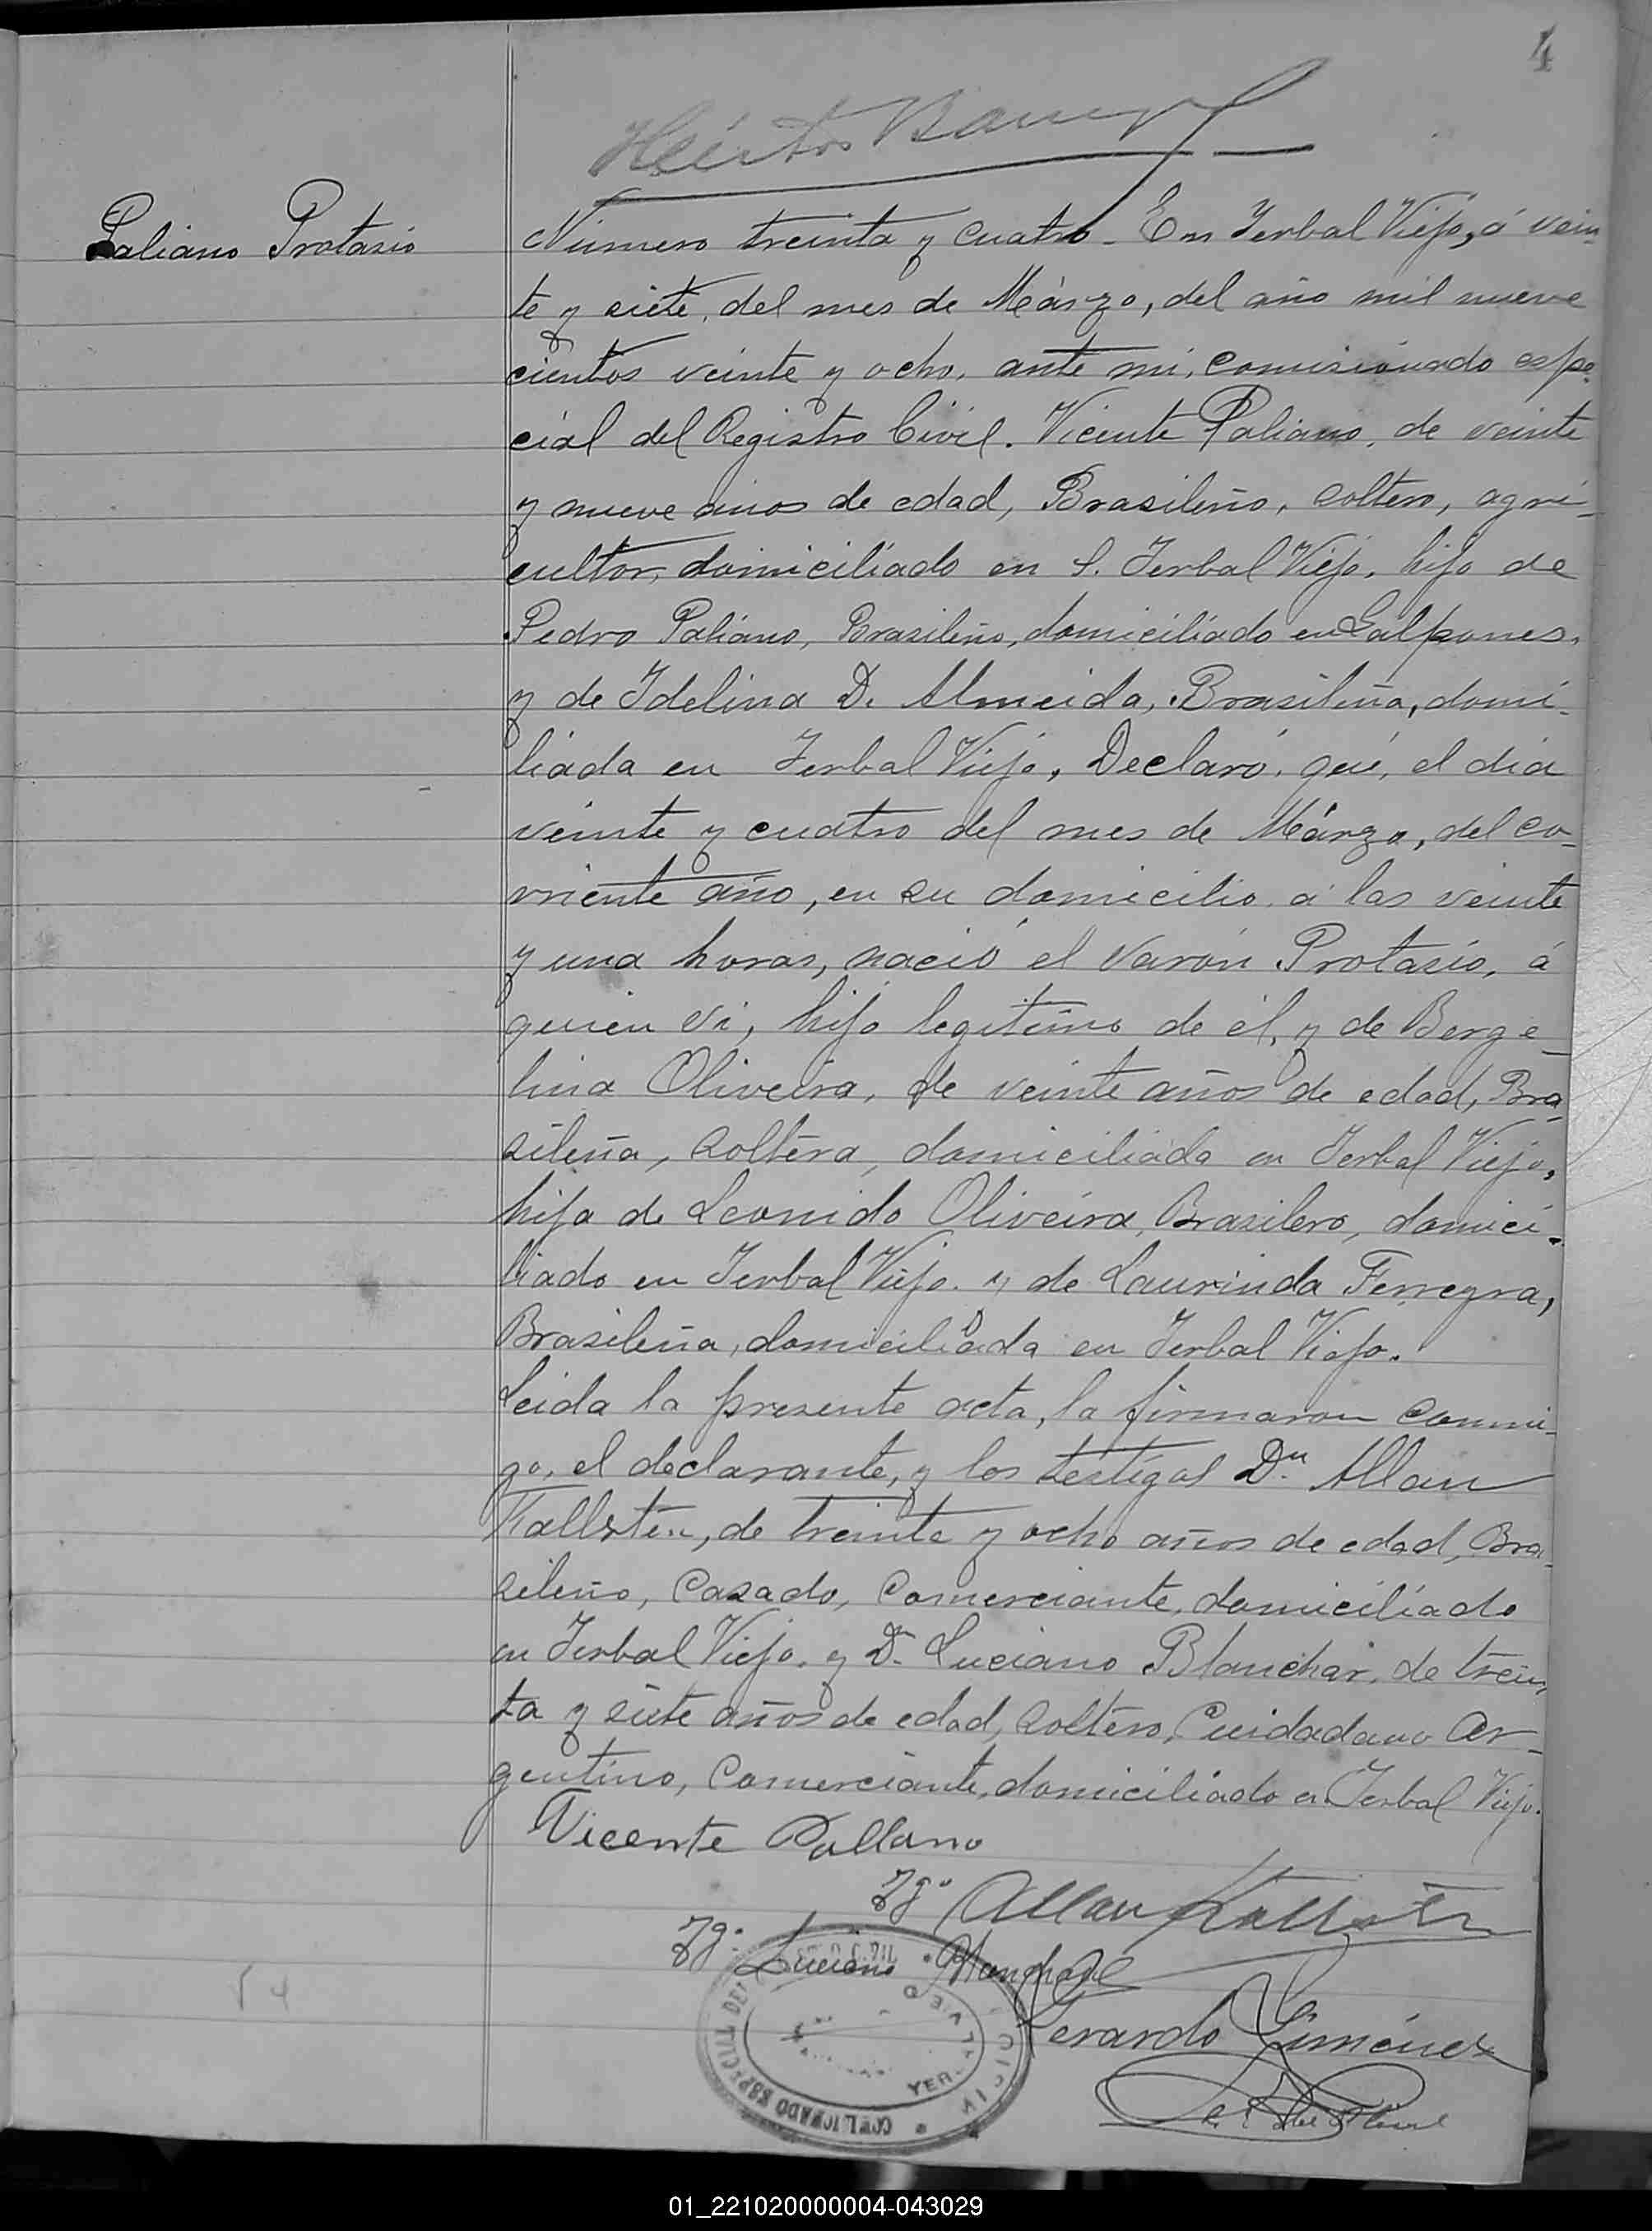 4
Paliano Protasio
Número treinta y cuatro - En Yerbal Viejo, á vein
te y siete, del mes de Márzo, del año mil nueve
cientos veinte y ocho, ante mi, comisionado espe
cial del Registro Civil. Vicente Paliano, de veinte
y nueve años de edad, Brasileño, soltero, agri-
cultor, domiciliado en S. Yerbal Viejo, hijo de
Pedro Paliano, Brasileño, domiciliado en Galpones,
y de Idelina D. Almeida, Brasileña, domi-
liada en Yerbal Viejo, Declaró, qué, el dia
veinte y cuatro del mes de Márzo, del co-
rriente año, en su domicilio á las veinte
y una horas, nació el varón Protasio, á
quien vi, hijo legitimo de él, y de Berge-
lina Oliveira, de veinte años de edad, Bra
sileña, soltera, domiciliada en Yerbal Viejo,
hija de Leonido Oliveira, Brasilero, domici-
liado en Yerbal Viejo. y de Laurinda Ferreyra,
Brasileña, domiciliada en Yerbal Viejo.
Leida la presente acta, la firmaron conmi-
go, el declarante, y los testigos Dn. Allan
Kallsten, de treinta y ocho años de edad, Bra-
sileño, Casado, Comerciante, domiciliado
en Yerbal Viejo, y D. Luciano Blanchar, de trein
ta y siete años de edad, soltero, Cuidadano Ar-
gentino, Comerciante, domiciliado en Yerbal Viejo.
Vicente Pallano
Tgo Allan Kallsten
Tgo. Luciano Blanchard
Gerardo Giménez
YER
01_221020000004-043029